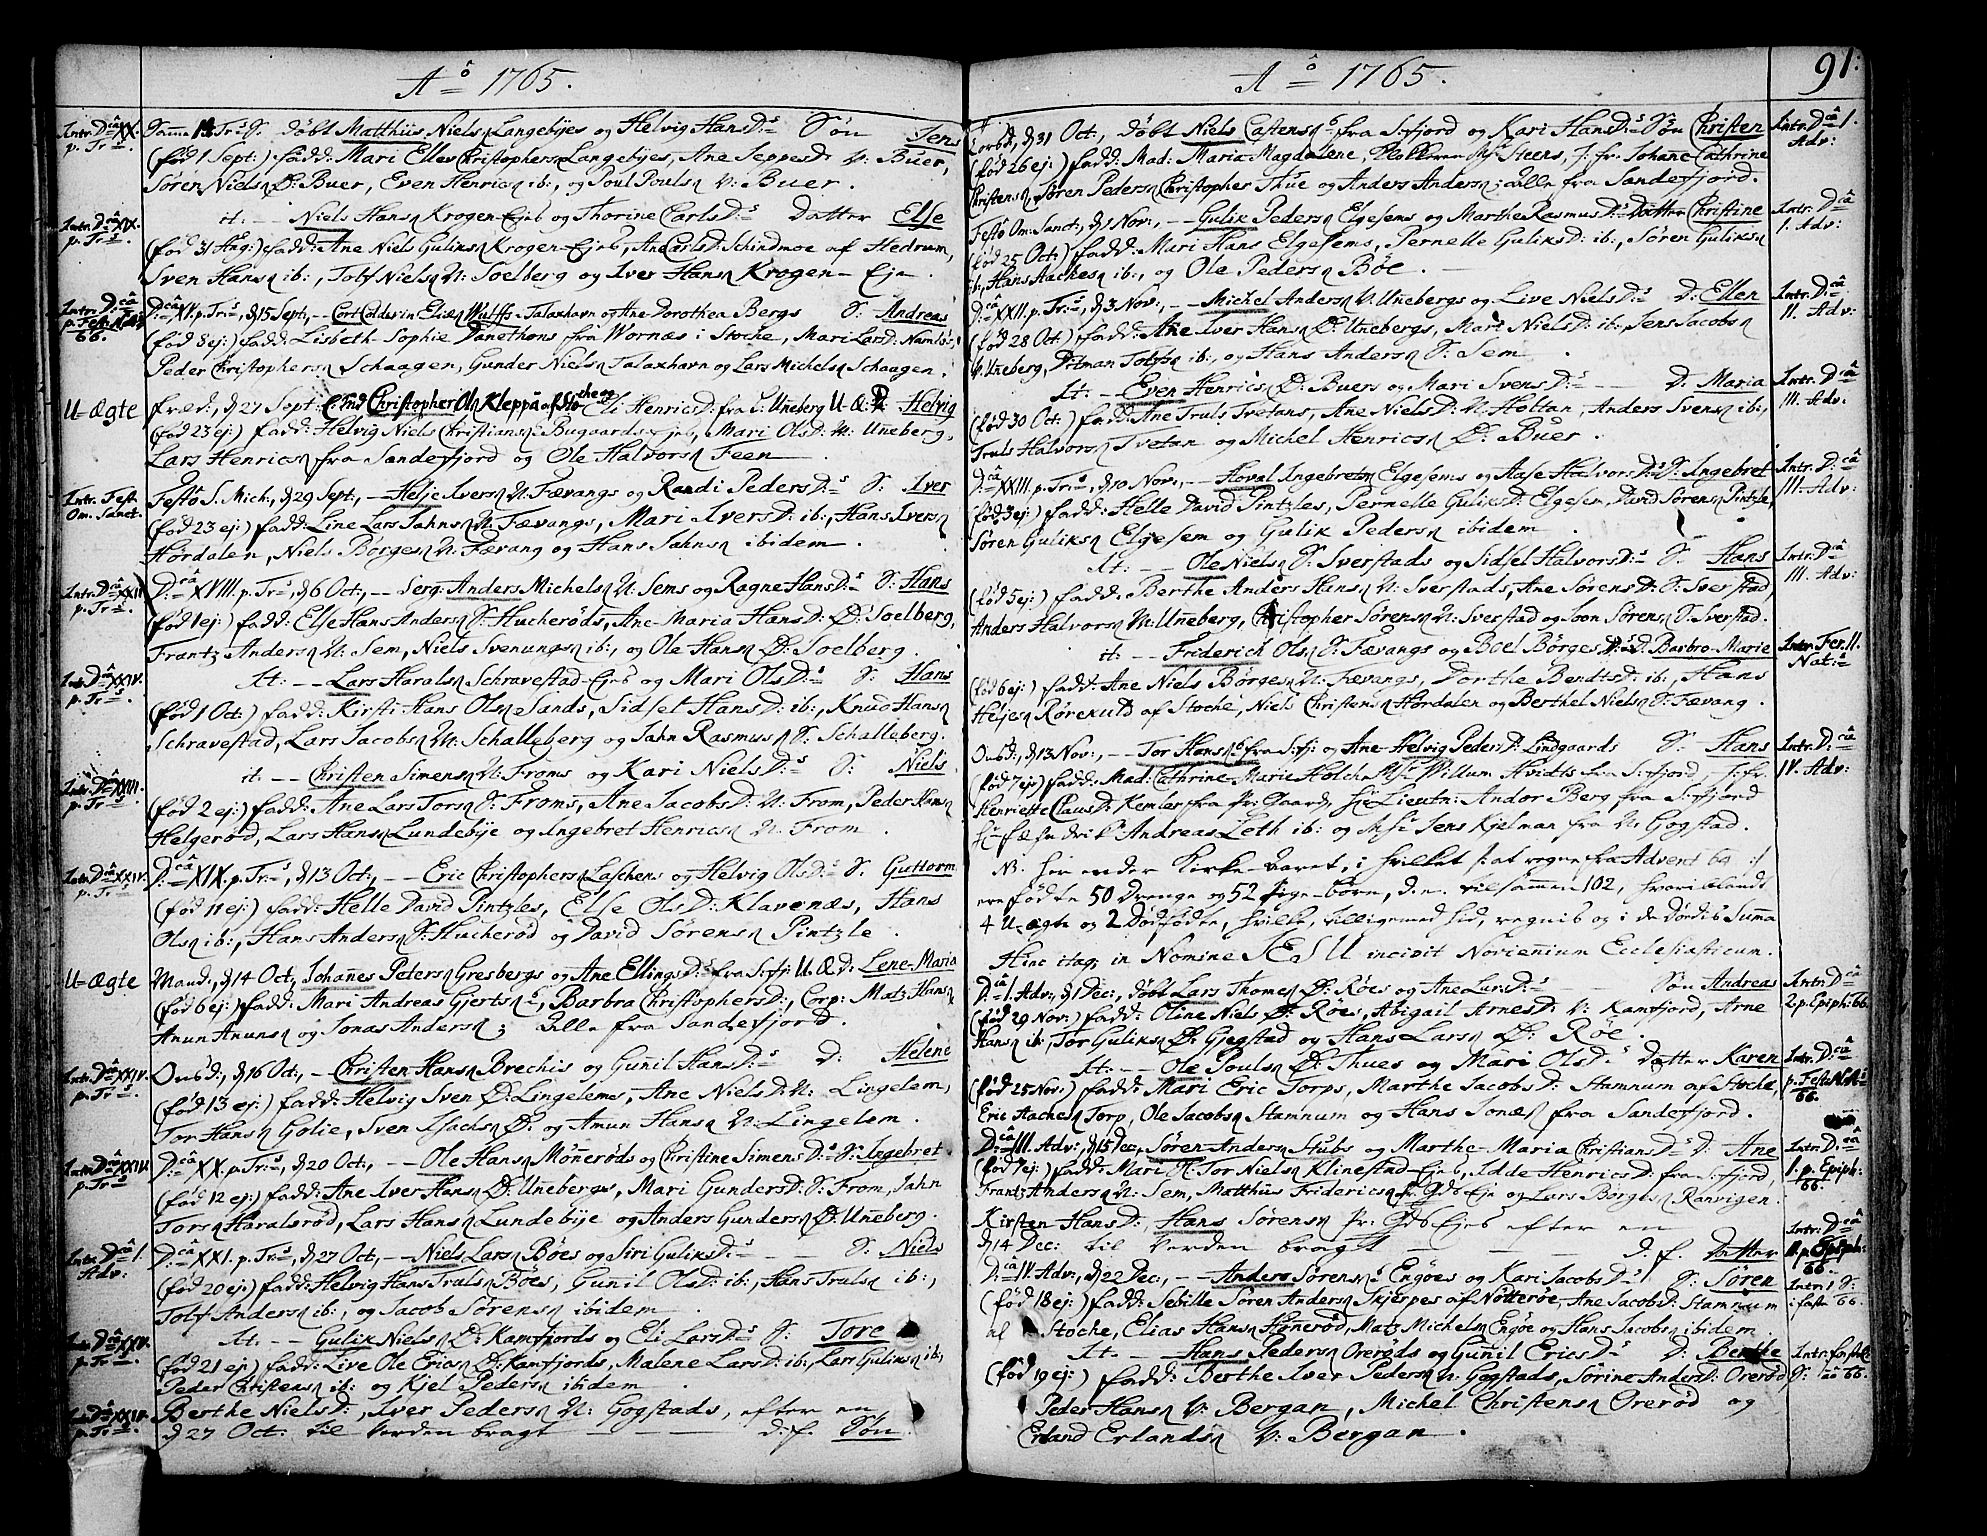 Aº 1765.
Intr. Dcâ XX. p. Trs.
Samme 14 Trs S. døbt Matthiis Nielsn Langebyes og Helvig Hans D:s Søn Jens
(fød 1 Sept:) fadd: Mari Elles Christophersn Langebyes, Ane Jeppes D. V: Buer,
Søren Nielsn Ø: Buer, Even Henricsn ib:, og Poul Poulsn V: Buer.
Intr. Dcâ XIX. p. Trs.
it: -- Niels Hansn Krogen-Ejes og Thorine Carls D:s Datter Else
(fød 31 Aug:) fadd: Ane Niels Guliksn Krogen-Ejes, Ane Carls D: Schindmoe af Hedrum,
Sven Hansn ib:, Tolf Nielsn N: Soelberg og Iver Hansn Krogen-Eje.
Intr. Dcâ p. Fest. Nat: 66.
Dcâ XV. p. Trs, d 15 Sept:, -- Cort Coldevin Eliæ Wulffs Talaxhavn og Ane Dorothea Bergs S: Andreas
(fød 8 ej:) fadd: Lisbeth-Sophie Danethons fra Wornæs i Stoche, Mari Lars D: Namløs,
Peder Christophersn Schaagen, Gunder Nielsn Talaxhavn og Lars Michelsn Schaagen.
U-Ægte
Fred:, d 27 Sept: Christopher Olsn Kleppan af Stochesogn Eli Henrics D: fra V: Uneberg U. Æ. D. Helvig
(fød 23 ej:) fadd: Helvig Niels Christiansn Bugaards-Ejes, Mari Ols D: N: Uneberg,
Lars Henricsn fra Sandefjord og Ole Halvorsn Feen.
Intr. Fest. Om. Sanct.
Festo S. Mich., d 29 Sept., -- Helje Iversn N: Fævangs og Randi Peders D:s S: Iver
(fød 23 ej:) fadd: Line Lars Jahnsn N: Fævangs, Mari Ivers D: ib:, Hans Iversn
Hørdalen, Niels Børgesn N: Fævang og Hans Jahnsn ibidem.
Intr. Dcâ XXII p. Trs.
Dcâ XVIII. p. Trs, d 6 Oct:, -- Serg: Anders Michelsn N: Sems og Ragne Hans D:s S: Hans
(fød 1 ej:) fadd: Else Hans Andersn S: Hucherøds, Ane-Maria Hans D: Ø: Soelberg,
Frantz Andersn N: Sem, Niels Svenungsn ib:, og Ole Hansn Ø: Soelberg.
Intr. Dcâ XXIV. p. Trs.
It: -- Lars Haralsn Schravestad-Ejes og Mari Ols D:s S: Hans
(fød 1 Oct:) fadd: Kirsti Hans Olsn Sands, Sidsel Hans D: ib:, Knud Hansn
Schravestad, Lars Jacobsn N: Schalleberg og Jahn Rasmusn S: Schalleberg.
Intr. Dcâ XXIII. p. Trs.
it: -- Christen Simensn N: Froms og Kari Niels D:s S: Niels
(fød 2 ej:) fadd: Ane Lars Torsn S: Froms, Ane Jacobs D: N: From, Peder Hansn
Helgerød, Lars Hansn Lundebye og Ingebret Henricsn N: From.
Intr. Dcâ XXIV. p. Trs.
Dcâ XIX. p. Trs, d 13 Oct:, -- Eric Christophersn Laschens og Helvig Ols D:s S: Guttorm
(fød 11 ej:) fadd: Helle David Pintzles, Else Ols D: Klavenæs, Hans
Olsn ib:, Hans Andersn S: Hucherød og David Sørensn Pintzle.
U-Ægte
Mand., d 14 Oct:, Johanes Petersn Gresbergs og Ane Ellings D:s fra S:fj: U. Æ. D: Lene-Maria
(fød 6 ej:) fadd: Mari Andreas Gjertsns, Barbra Christophers D:, Corp: Matz Hansn
Anun Anunsn og Jonas Andersn; Alle fra Sandefjord.
Intr. Dcâ XXIV. p. Trs.
Onsd:, d 16 Oct:, -- Christen Hansn Brechis og Gunil Hans D:s D: Helene
(fød 13 ej:) fadd: Helvig Sven Ø: Lingelems, Ane Niels D: N: Lingelem,
Tor Hansn Golie, Sven Isachsn Ø: og Amun Hansn N: Lingelem.
Intr. Dcâ XXIV. p. Trs.
Dcâ XX. p. Trs, d 20 Oct:, -- Ole Hansn Mønerøds og Christine Simens D:s S: Ingebret
(fød 12 ej:) fadd: Ane Iver Hansn Ø: Unebergs, Mari Gunders D: S: From, Jahn
Torsn Haralsrød, Lars Hansn Lundebye og Anders Gundersn Ø: Uneberg.
Intr. Dcâ 1. Adv:
Dcâ XXI. p. Trs, d 27 Oct:, -- Niels Larsn Bøes og Siri Guliks D:s S: Niels
(fød 20 ej:) fadd: Helvig Hans Trulsn Bøes, Gunil Ols D: ib:, Hans Trulsn ib:,
Tolf Andersn ib:, og Jacob Sørensn ibidem.
Intr. Dcâ XXV. p. Trs.
It: -- Gulik Nielsn Ø: Kamfjords og Eli Lars D:s S: Tore
(fød 21 ej:) fadd: Live Ole Ericsn Ø: Kamfjords, Malene Lars D: ib:, Lars Guliksn ib:,
Peder Christensn ib: og Kjel Pedersn ibidem.
Intr. Dcâ XXIV. p. Trs.
Berthe Niels D:, Iver Pedersn N: Gogstads, efter en
d 27 Oct: til Verden bragt -- d. f. Søn.
Aº 1765.
91:
Torsd, d 31 Oct:, døbt Niels Castensns fra S:fjord og Kari Hans D:s Søn Christen
Intr: Dcâ 1. Adv:
(fød 26 ej:) fadd: Mad: Maria Magdalene, Msr Steens, J:fr. Johane Cathrine
Christensn, Søren Pedersn Christopher Thue og Anders Andersn; Alle fra Sandefjord.
Festo Om: Sanct:, d 1 Nov:, -- Gulik Pedersn Elgesems og Marthe Rasmus D:s Datter Christine
Intr: Dcâ 1. Adv:
(fød 25 Oct:) fadd: Mari Hans Elgesems, Pernelle Guliks D: ib:, Søren Guliksn
ib:, Hans Aachesn ib:, og Ole Pedersn Bøe.
Dcâ XXII. p. Trs, d 3 Nov:, -- Michel Andersn V: Unebergs og Live Niels D:s D: Ellen
Intr. Dcâ II. Adv:
(fød 28 Oct:) fadd: Ane Iver Hansn Ø: Unebergs, Mari Niels D: ib:, Jens Jacobsn
V: Uneberg, Ditman Tolfsn ib:, og Hans Andersn S: Sem.
It: -- Even Henricsn Ø: Buers og Mari Svens D:s -- D: Maria
Intr. Dcâ III. Adv:
(fød 30 Oct:) fadd: Ane Truls Tvetans, Ane Niels D: N: Holtan, Anders Svensn ib:,
Truls Halvorsn Tvetan og Michel Henricsn Ø: Buer.
Dcâ XXIII. p. Trs, d 10 Nov:, -- Hoval Ingebretsn Elgesems og Aase Halvors D:s S: Ingebret
Intr. Dcâ III. Adv:
(fød 3 ej:) fadd: Helle David Pintzles, Pernelle Guliks D: Elgesem, David Sørensn Pintzle,
Søren Guliksn Elgesem og Gulik Pedersn ibidem.
It: -- Ole Nielsn S: Sverstads og Sidsel Halvors D:s S: Hans
Intr. Dcâ III. Adv:
(fød 5 ej:) fadd: Berthe Anders Hansn N: Sverstads, Ane Sørens D: S: Sverstad,
Anders Halvorsn N: Uneberg, Christopher Sørensn N: Sverstad og Joon Sørensn S: Sverstad.
it: -- Friderich Olsn S: Fævangs og Boel Børges D:s D: Barbro-Marie
Intr. Fer. II. Nat:s
(fød 6 ej:) fadd: Ane Niels Børgesn N: Fævangs, Dorthe Bendts D: ib:, Hans
Heljesn Rørexuld af Stoche, Niels Christensn Hørdalen og Berthel Nielsn S: Fævang.
Onsd:, d 13 Nov:, -- Tor Hansns fra S:fj: og Ane-Helvig Peder D: Lindgaards S: Hans
Intr. Dcâ IV. Adv:
(fød 7 ej) fadd: Mad: Cathrine-Marie Holch Msr Willum Hvidts fra S:fjord, J:fr.
Henriette Claus D: Kemler fra Pr: Gaard, Hr. Lieutn: Andor Berg fra S:fjord
Hr. Andreas Leth ib: og Msr Jens Kjelman fra N: Gogstad.
NB. Her ender Kirke-Aaret, i hvilket /: at regne fra Advent 64 :/
ere fødte 50 Drenge og 52 Pige-børn, d. e. tilsammen 102, hvoriblandt
4 U-ægte og 2 Dødfødte, hvilke, tilligemed hid, regnis og i de Dødis Summa
Hinc itaq; in Nomine JESU incipit Novennium Ecclesiasticum.
Dcâ 1 Adv:, d 1 Dec:, døbt Lars Thomesn Ø: Røes og Ane Lars D:s Søn Andreas
Intr Dcâ 2 p. Epiph: 66.
(fød 29 Nov:) fadd: Oline Niels Ø: Røes, Abigail Arnes D: V: Kamfjord, Arne
Hansn ib:, Tor Guliksn Ø: Gjogstad og Hans Larsn Ø: Røe
It: -- Ole Poulsn Ø: Thues og Mari Ols D:s Datter Karen
Intr. Dcâ p. Fest. Nat:s 66.
(fød 25 Nov:) fadd: Mari Eric Torps, Marthe Jacobs D: Stamnum af Stoche,
Eric Aachesn Torp, Ole Jacobsn Stamnum og Hans Jonæs fra Sandefjord.
Dcâ III. Adv:, d 15 Dec, Søren Andersn Stubs og Marthe-Maria Christians D:s D: Ane
Intr. Dcâ 1. p. Epiph: 66.
(fød 7 ej:) fadd: Mari Ol: Tor Nielsn Klinestad-Ejes, Idde Henrics D: fra S:fjord,
Frantz Andersn N: Sem, Matthiis Fridericsn Pr: Gds Eje og Lars Børgesn Ranvigen.
Kirsten Hans D:, Hans Sørensn Pr: Gds Ejes efter en
Intr: Dcâ II. p. Epiph: 66.
d 14 Dec: til Verden bragt -- d. f. Datter
Dcâ IV. Adv:, d 22 Dec:, -- Anders Sørensns Engøes og Kari Jacobs D:s S: Søren
Intr. 1 S: i fast. 66.
(fød 18 ej:) fadd: Sebille Søren Andersn Skjerpes af Nøtterøe, Ane Jacobs D: Stamnum
af Stoche, Elias Hansn Henerød, Matz Michelsn Engøe og Hans Jacobsn ibidem
It: -- Hans Pedersn Orerøds og Gunil Erics D:s D: Berthe
(fød 19 ej:) fadd: Berthe Iver Pedersn N: Gogstads, Sørine Anders D: Orerød
Peder Hansn V: Bergan, Michel Christensn Orerød og
Erland Erlandsn V: Bergan.